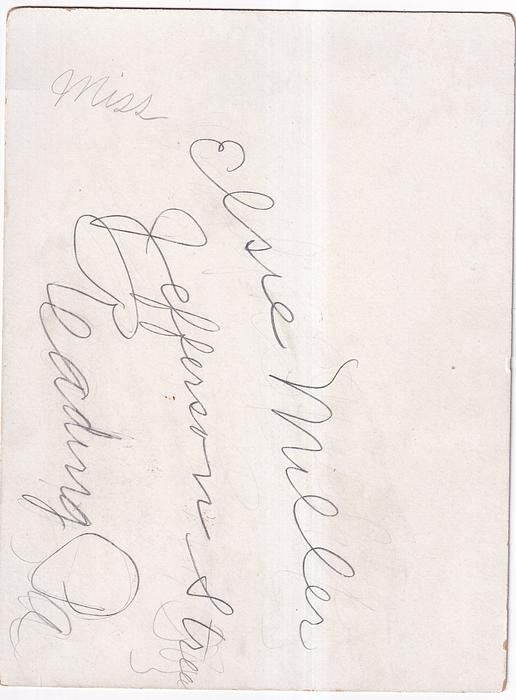 Miss
Elsie Miller
Jefferson Stree
Reading Pa